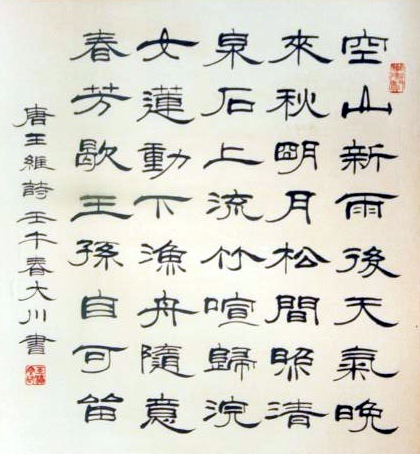 空山新雨後天氣晚
來秋明月松間照清
泉石上流竹喧歸浣
女蓮動下漁舟隨意
春芳歇王孫自可留
唐王維詩壬午春大川書